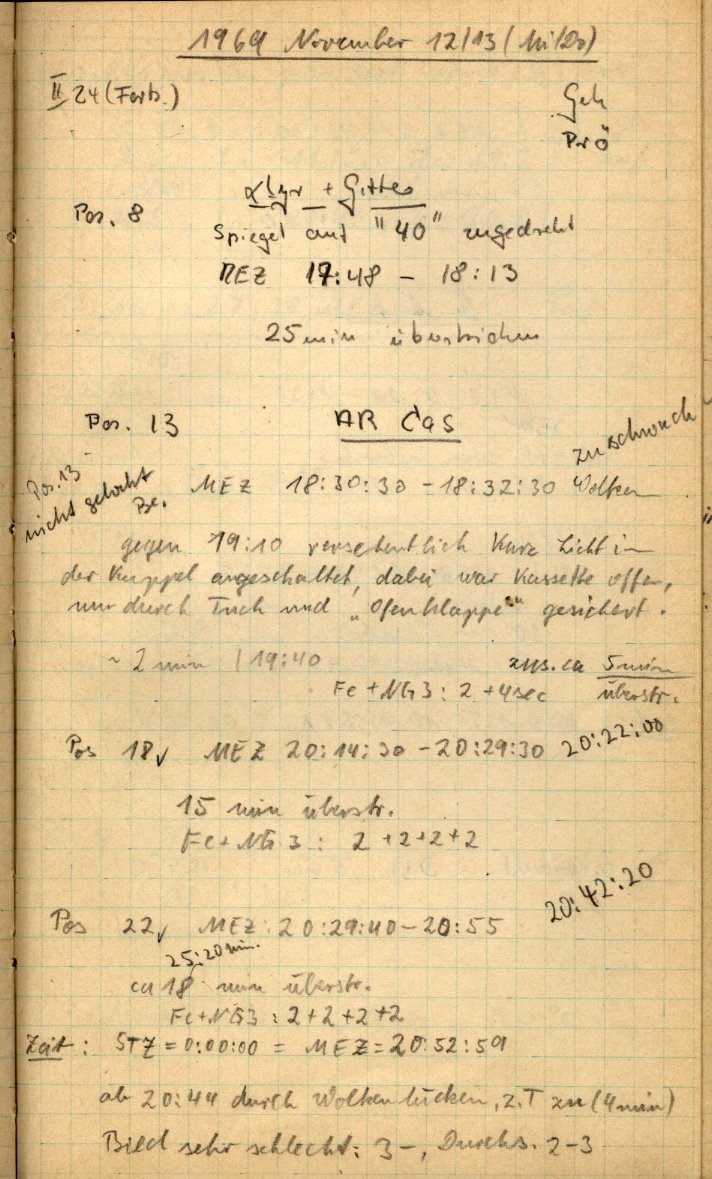 1969 November 12/13 (Mi/Do)
II 24 (Forts.)
Geh
Prö
α Lyr + Gitter
Pos. 8
Spiegel auf "40" zugedreht
MEZ 17:48 – 18:13
25 min überstrichen
Pos. 13 AR Cas
zu schwach
Pos. 13
nicht gelocht
Be.
MEZ 18:30:30 – 18:32:30 Wolken
gegen 19:10 versehentlich kurz Licht in
der Kuppel angeschaltet, dabei war Kassette offen,
nur durch Tuch und „Ofenklappe" gesichert.
~ 2 min (19:40 zus. ca 5 min
Fe + NG3 : 2 + 4 sec überstr.
Pos 18√ MEZ 20:14:30 – 20:29:30 20:22:00
15 min überstr.
Fe + NG 3 : 2 + 2 + 2 + 2
20:42:20
Pos 22√ MEZ: 20:29:40 – 20:55
25:20 min.
ca 18 min überstr.
Fe + NG3 : 2 + 2 + 2 + 2
Zeit : STZ = 0:00:00 = MEZ = 20:52:59
ab 20:44 durch Wolkenlücken, z.T zu (4 min)
Bild sehr schlecht: 3 –, Durchs. 2–3